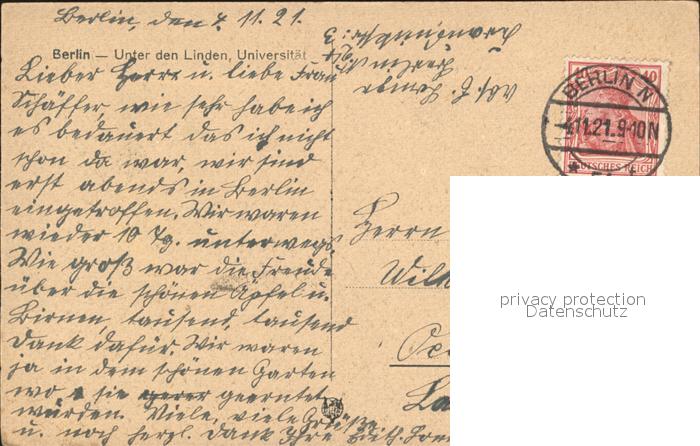 Berlin, den 4. 11. 21.
Berlin — Unter den Linden, Universität
Lieber Herr u. liebe Frau
Schäffer wie sehr habe ich
es bedauert das ich nicht
schon da war, wir sind
erst abends in Berlin
eingetroffen. Wir waren
wieder 10 Tg. unterwegs.
Wie groß war die Freude
über die schönen Äpfel u.
Birnen, tausend, tausend
Dank dafür. Wir waren
ja in dem schönen Garten
wo sie geerntet
wurden. Viele, viele Grüße
u. noch herzl. Dank Ihre
BERLIN N
4.11.21.9-10N
40
DEUTSCHES REICH
Herrn
privacy protection
Datenschutz